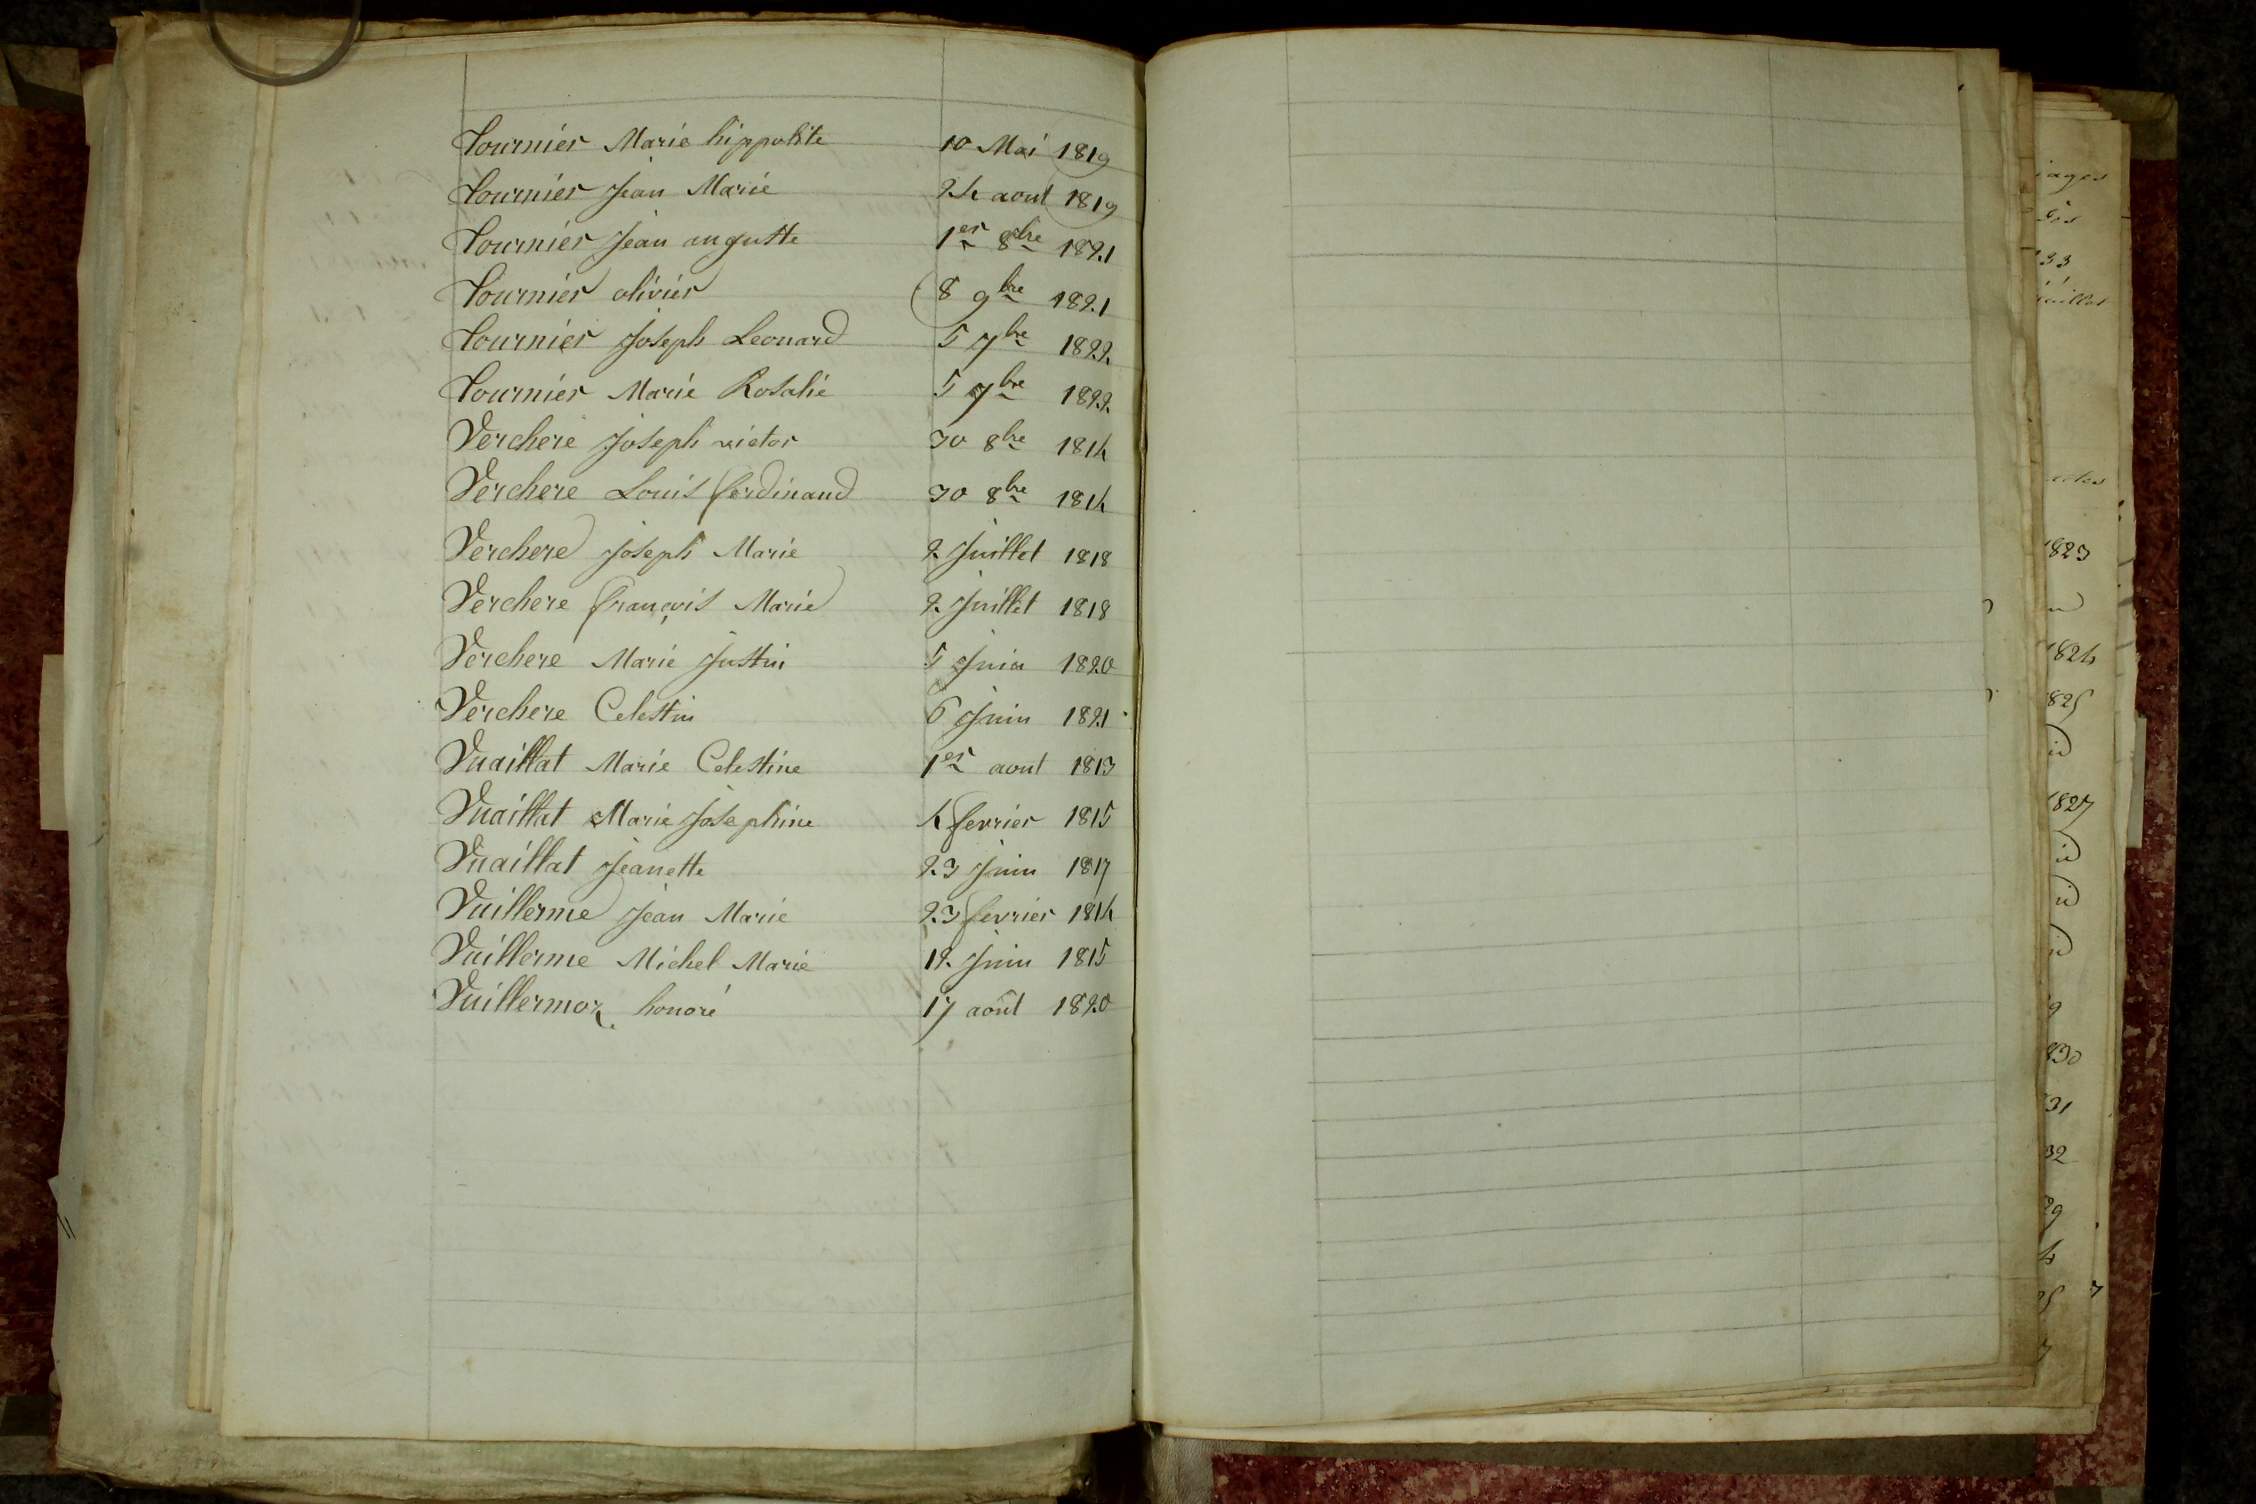 Tournier Marie hippolite 10 Mai 1819
Tournier Jean Marie 24 aout 1819
Tournier Jean auguste 1er 8bre 1821
Tournier olivier 8 9bre 1821
Tournier Joseph Leonard 5 7bre 1822
Tournier Marie Rosalie 5 7bre 1822
Verchere Joseph victor 30 8bre 1814
Verchere Louis ferdinand 30 8bre 1814
Verchere Joseph Marie 2 Juillet 1818
Verchere françois Marie 2 Juillet 1818
Verchere Marie Justin 5 Juin 1820
Verchere Celestin 6 Juin 1821
Vuaillat Marie Celestine 1er aout 1813
Vuaillat Marie Josephine 4 fevrier 1815
Vuaillat Jeanette 23 Juin 1817
Vuillerme Jean Marie 23 fevrier 1814
Vuillerme Michel Marie 12 Juin 1815
Vuillermoz honoré 17 août 1820
iages
33
juillet
1823
1824
1825
1827
830
31
32
29
4